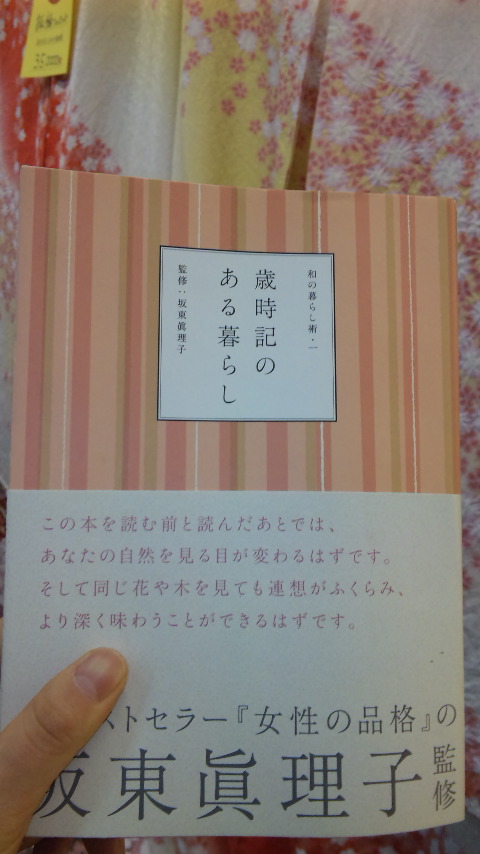 和の暮らし術・一
歳時記の
ある暮らし
監修：坂東眞理子
この本を読む前と読んだあとでは、
あなたの自然を見る目が変わるはずです。
そして同じ花や木を見ても連想がふくらみ、
より深く味わうことができるはずです。
ストセラー『女性の品格』の
坂東眞理子
監修